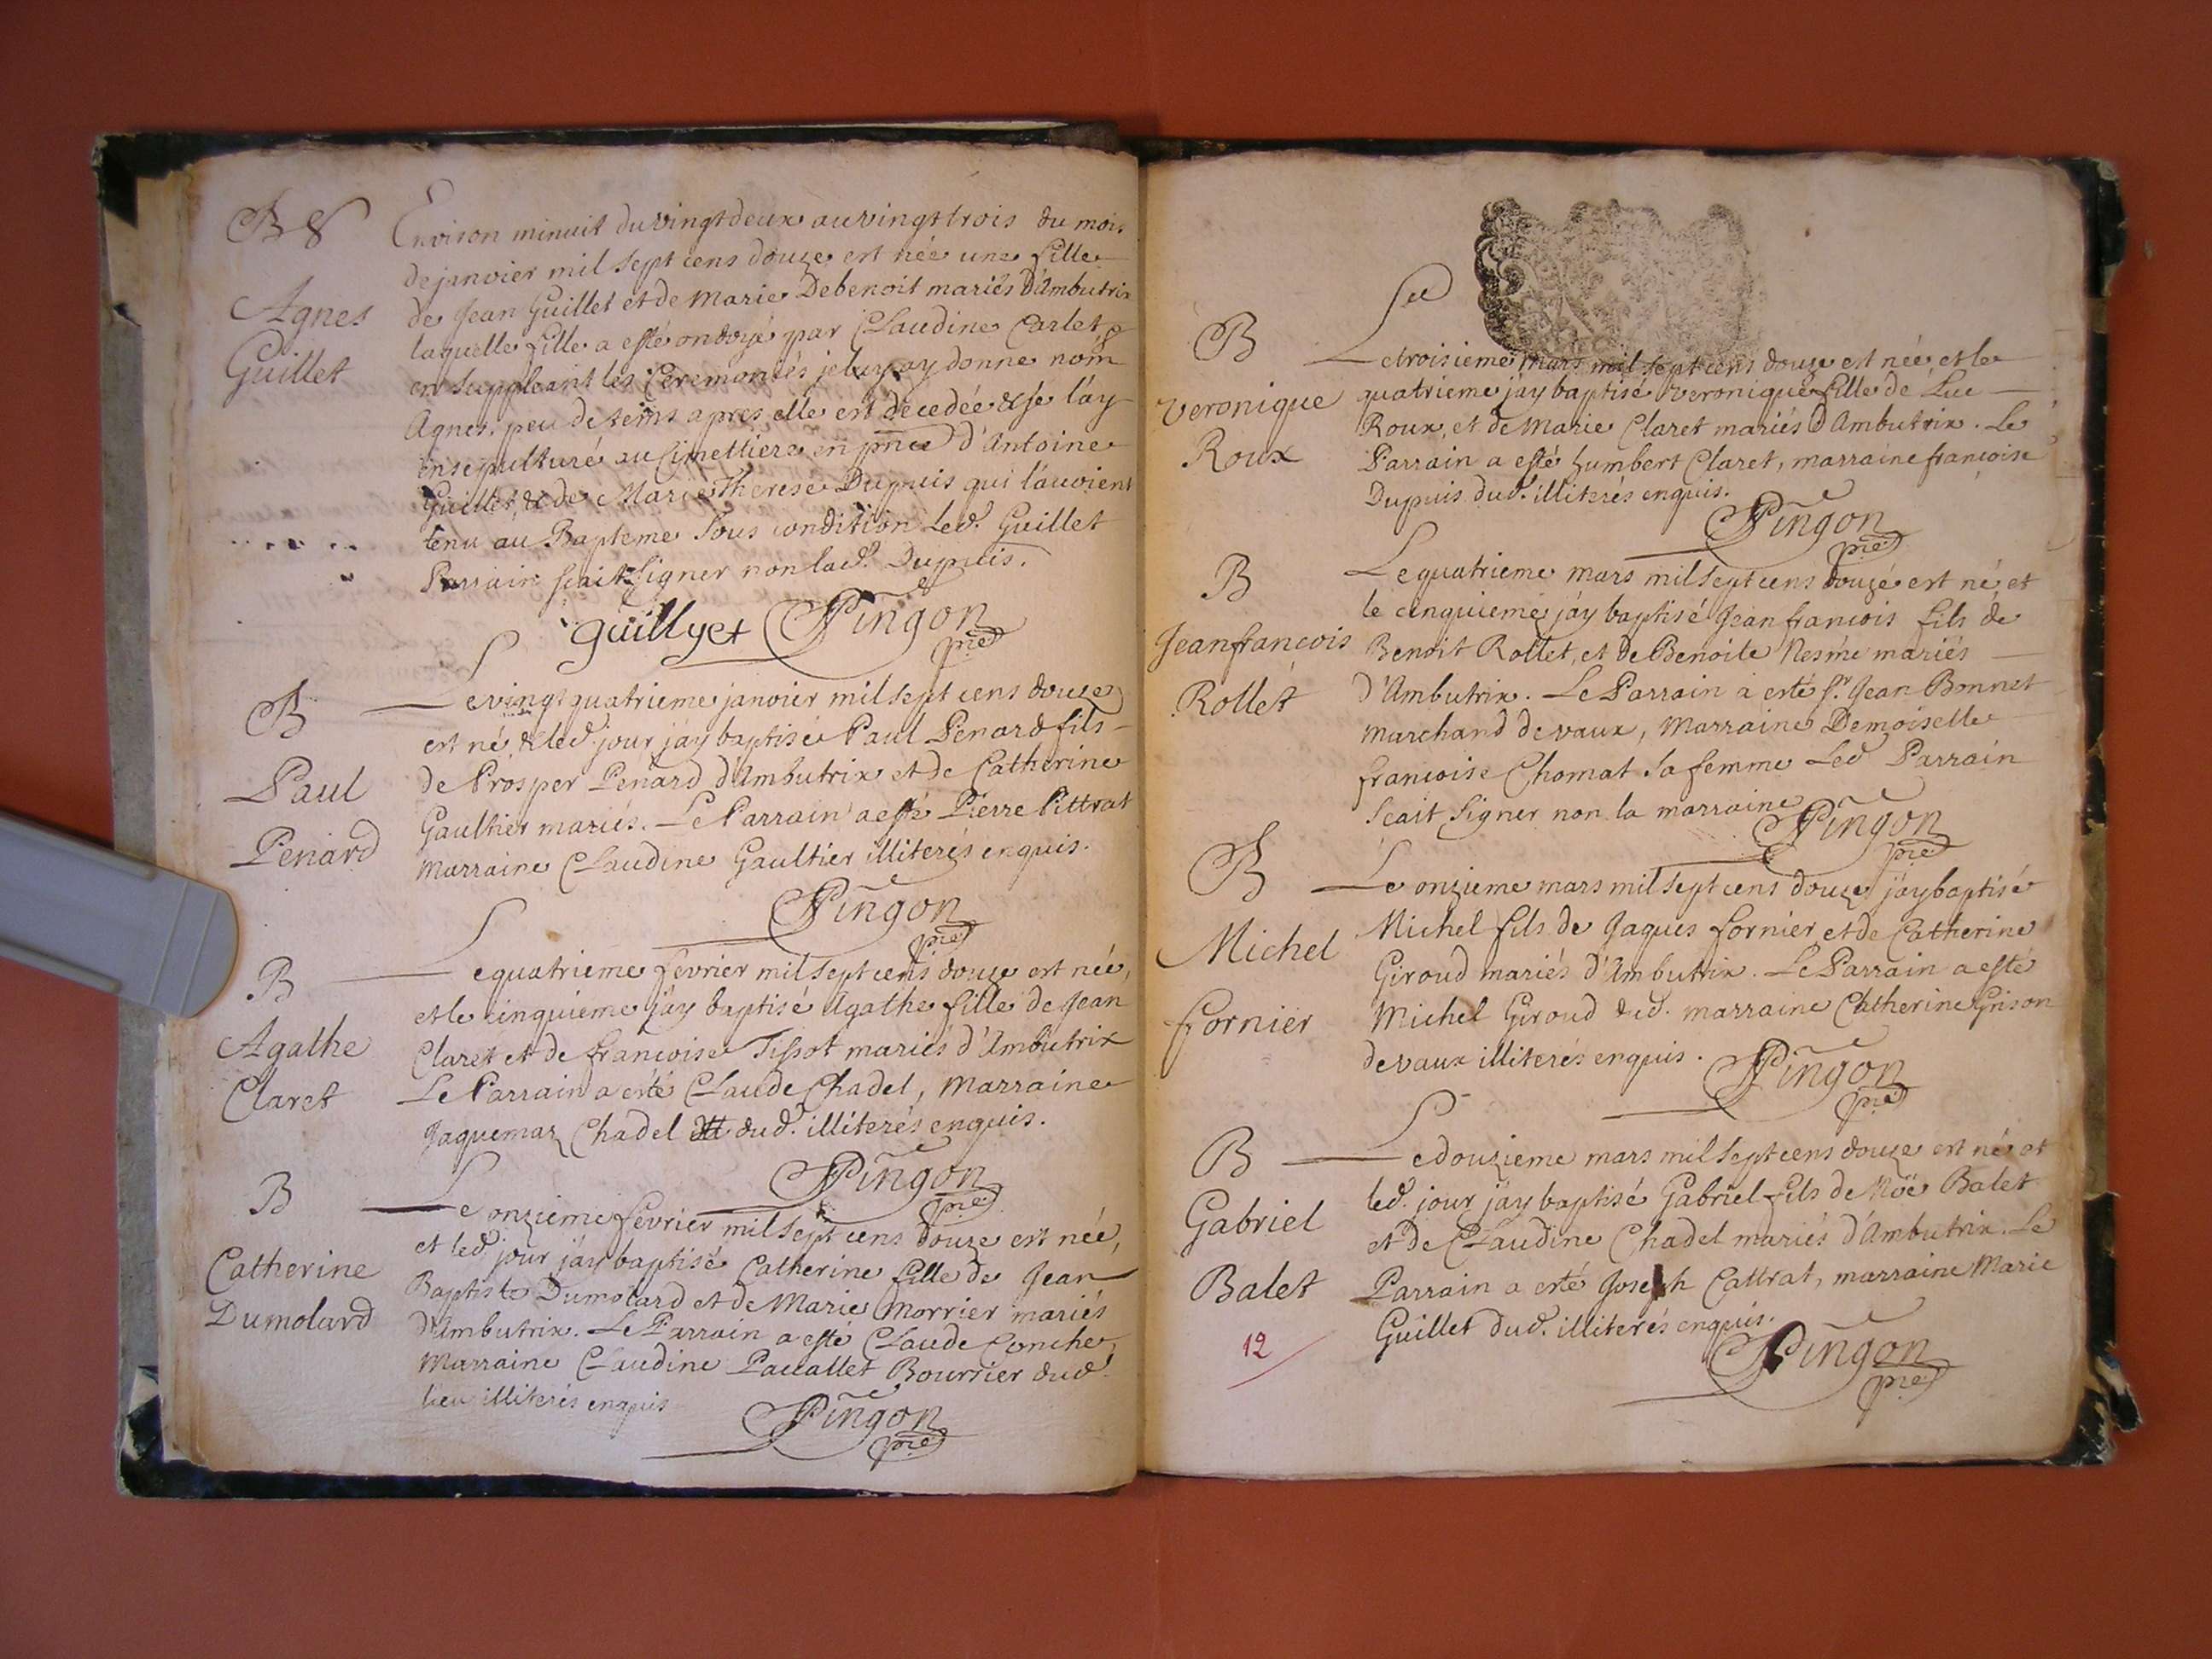 B &
Agnes
Guillet
Environ minuit du vingt deux au vingt trois du mois
de janvier mil sept cens douze est née une fille
de Jean Guillet et de Marie Debenoit mariés d'Ambutrix
laquelle fille a esté ondoyé par Claudine Carlet, &
en suppleant les Ceremoniés je luy ay donne nom
Agnes, peu de tems apres elle est decedée & je l'ay
ensepulturé au Cimettiere en pnce d'Antoine
Guillet, & de Marie Therese Dupuis qui l'auoient
tenu au Bapteme sous condition led. Guillet
Parrain scait signer non lad. Dupuis.
Guillyet Pingon
pre
B
Paul
Penard
Le vingt quatrieme janvier mil sept cens douze
est né & led. jour j'ay baptisé Paul Penard fils
de Prosper Penard d'Ambutrix et de Catherine
Gaultier mariés. Le Parrain a esté Pierre Pittrat
Marraine Claudine Gaultier illiterés enquis.
Pingon
pre
B
Agathe
Claret
Le quatrieme février mil sept cens douze est née,
et le cinquieme j'ay baptisé Agathe fille de Jean
Claret et de francoise Tissot mariés d'Ambutrix
Le Parrain a esté Claude Chadel, Marraine
Jaquemaz Chadel dud. illiterés enquis.
Pingon
pre
B
Catherine
Dumolard
Le onzieme février mil sept cens douze est née,
et led. jour j'ay baptisé Catherine fille de Jean
Baptiste Dumolard et de Marie Morrier mariés
d'Ambutrix. Le Parrain a esté Claude Conche,
Marraine Claudine Pacallet Bourrier dud.
lieu illiterés enquis
Pingon
pre
B
Veronique
Roux
Le
Le troisieme mars mil sept cens douze est née et le
quatrieme j'ay baptisé Veronique fille de Luc
Roux, et de Marie Claret mariés d'Ambutrix. Le
Parrain a esté humbert Claret, marraine francoise
Dupuis dud. illiterés enquis.
Pingon
pre
B
Jeanfrancois
Rollet
Le quatrieme mars mil sept cens douze est né et
le cinquieme j'ay baptisé Jean francois fils de
Benoit Rollet, et de Benoite Nesme mariés
d'Ambutrix. Le Parrain a esté sr. Jean Bonnet
marchand de vaux, Marraine Demoiselle
francoise Chomat sa femme Led Parrain
scait signer non la marraine
Pingon
pre
B
Michel
fornier
Le onzieme mars mil sept cens douze j'ay baptisé
Michel fils de Jaques fornier et de Catherine
Giroud mariés d'Ambutrix. Le Parrain a esté
Michel Giroud dud. marraine Catherine Grison
de vaux illiterés enquis.
Pingon
pre
B
Gabriel
Balet
Le douzieme mars mil sept cens douze est né et
led. jour j'ay baptisé Gabriel fils de Noë Balet
et de Claudine Chadel mariés d'Ambutrix. Le
Parrain a esté Joseph Cattrat, marraine Marie
Guillet dud. illiterés enquis.
Pingon
pre
12